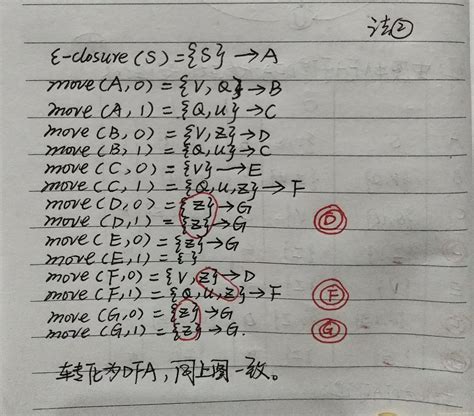 法②
ε-closure(S)={S}→A
move(A,0)={V,Q}→B
move(A,1)={Q,U}→C
move(B,0)={V,Z}→D
move(B,1)={Q,U}→C
move(C,0)={V}→E
move(C,1)={Q,U,Z}→F
move(D,0)={Z}→G
move(D,1)={Z}→G Ⓓ
move(E,0)={Z}→G
move(E,1)={ }
move(F,0)={V,Z}→D
move(F,1)={Q,U,Z}→F Ⓕ
move(G,0)={Z}→G
move(G,1)={Z}→G. Ⓖ
转化为DFA,同上图一致。